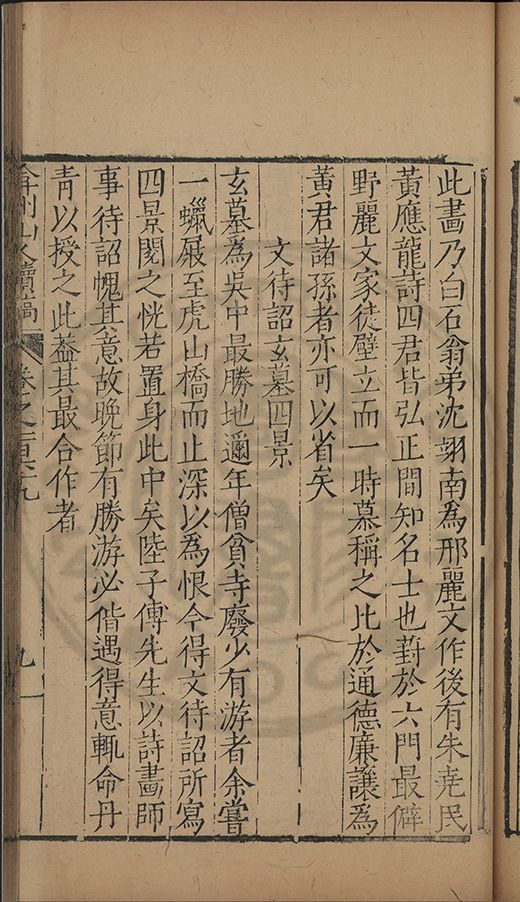 此畫乃白石翁弟沈翊南為邢麗文作後有朱堯民
黃應龍詩四君皆弘正間知名士也葑於六門最僻
野麗文家徒壁立而一時慕稱之比於通德廉讓為
黃君諸孫者亦可以省矣
文待詔玄墓四景
玄墓為吳中最勝地邇年僧貧寺廢少有游者余嘗
一蠟屐至虎山橋而止深以為恨今得文待詔所寫
四景閱之恍若置身此中矣陸子傳先生以詩畫師
事待詔愧其意故晚節有勝游必偕遇得意輒命丹
青以授之此蓋其最合作者
弇州山人續稿 卷之一百六十九 九